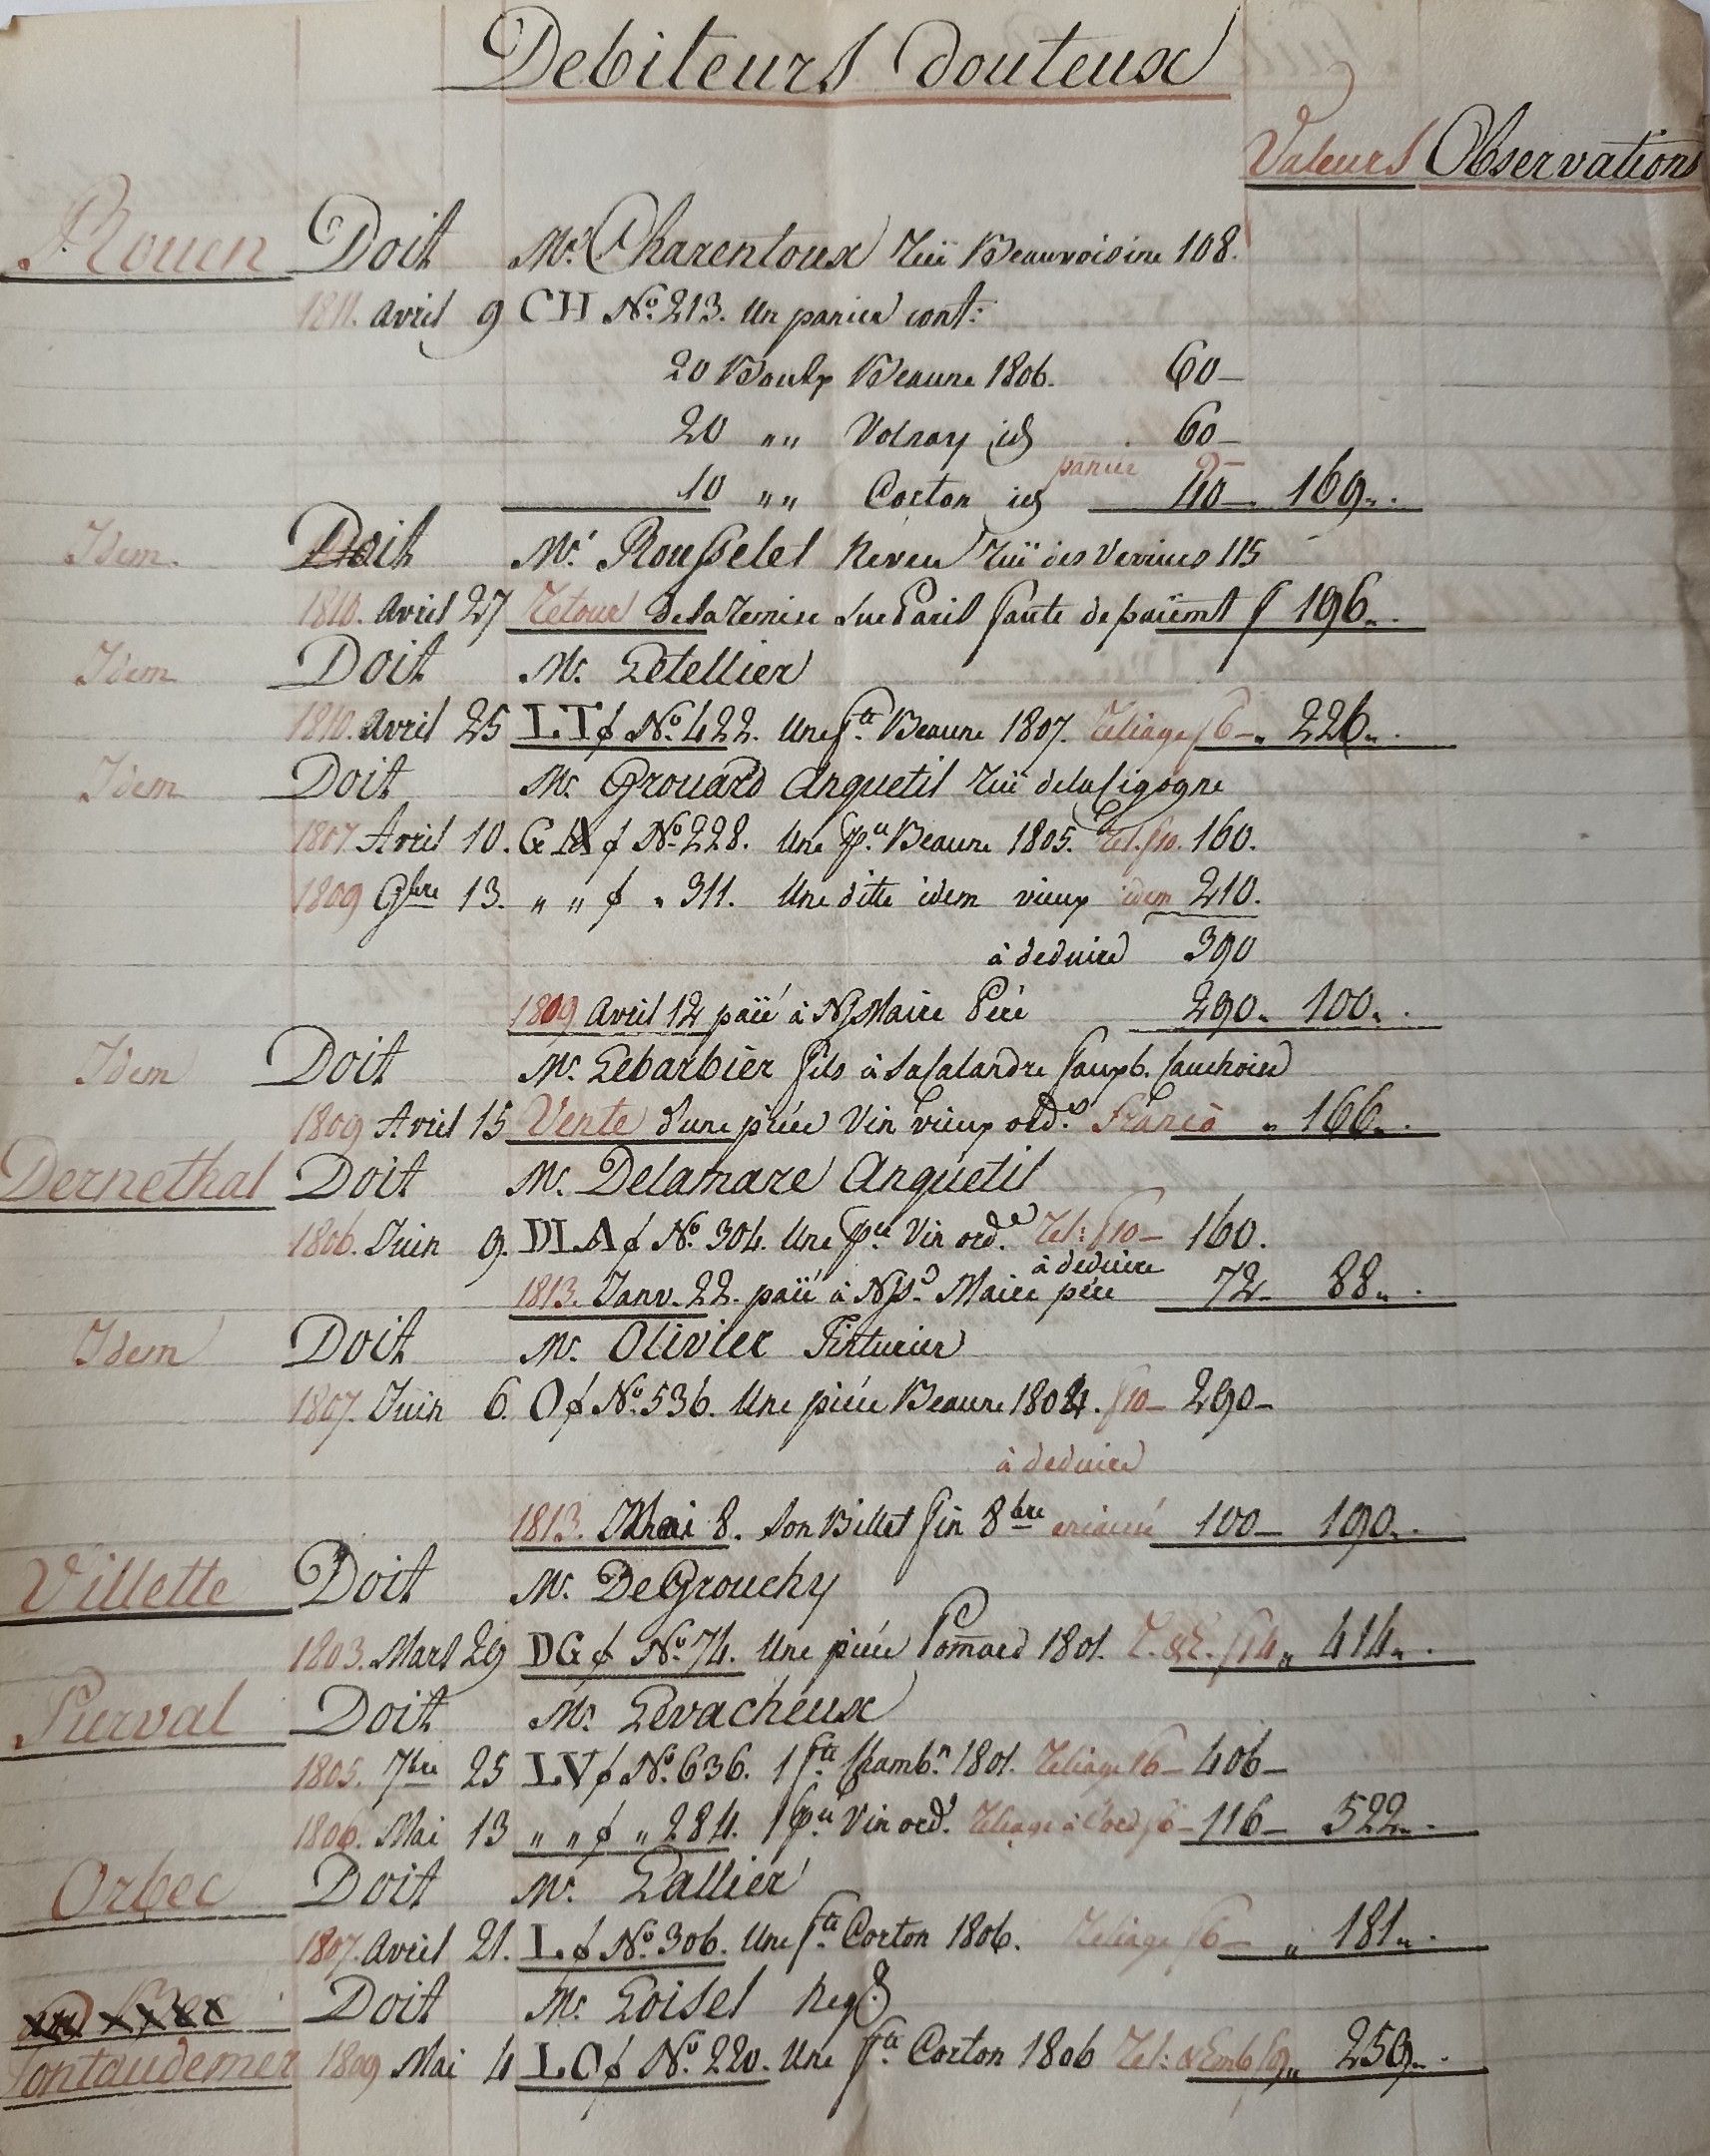 Debiteurs douteux
Valeurs Observations
Rouen Doit Mr. Charentoux rüe Beauvoisine 108.
1811. avril 9 CH No. 213. Un panier cont:
20 Boutx Beaune 1806. 60—
20 „„ Volnay id 60—
panier 9—
10 „„ Corton id 40— 169„.
Idem. Doit Mr. Rousselet Neveu rüe des Verriers 115
1810. avril 27 retour de la remise sur Paris faute de païemt f 196„.
Idem Doit Mr. Letellier
1810. avril 25 LT f No. 422. Une fte. Beaune 1807. reliage f 6—„ 226„.
Idem Doit Mr. Grouard Anquetil rüe de la Cigogne
1807. Avril 10. GA f No. 228. Une pce. Beaune 1805. rel. f 10. 160.
1809 9bre 13. „ „ f „ 311. Une ditte idem vieux idem 210.
à deduire 390
1809 avril 12 païé à N. Maire Pére 290„ 100„.
Idem Doit Mr. Lebarbier fils à la Calandre fauxb. Cauchoise
1809 Avril 15 Vente d'une piéce Vin vieux ord. franco „ 166„.
Dernethal Doit Mr. Delamare Anquetil
1806. Juin 9. DLA f No. 304. Une pce. Vin ord. rel: f 10— 160.
à deduire
1813. Janv. 22. païé à N. Sr. Maire pére 72— 88„.
Idem Doit Mr. Olivier Tinturier
1807. Juin 6. O f No. 536. Une piéce Beaune 1804. f 10— 290—
à deduire
1813. Mai 8. Son Billet fin 8bre 100— 190„.
Villette Doit Mr. De Grouchy
1803. Mars 29 DG f No. 74. Une piéce Pommard 1801. R. & E. f 14„ 414„.
Purval Doit Mr. Levacheux
1805. 7bre 25 LV f No. 636. 1 fte. Chambn. 1801. reliage f 6— 406—
1806. Mai 13 „ „ f „ 284. 1 pce. Vin ord. reliage à l'ord f 6— 116— 522„.
Orbec Doit Mr. Lallier
1807. avril 21. L. f No. 306. Une fte. Corton 1806. reliage f 6— „ 181„.
Doit Mr. Loisel Neg.
Pontaudemer 1809 Mai 4 LO f No. 220. Une fte. Corton 1806 rel: & Emb f 9„ 259„.